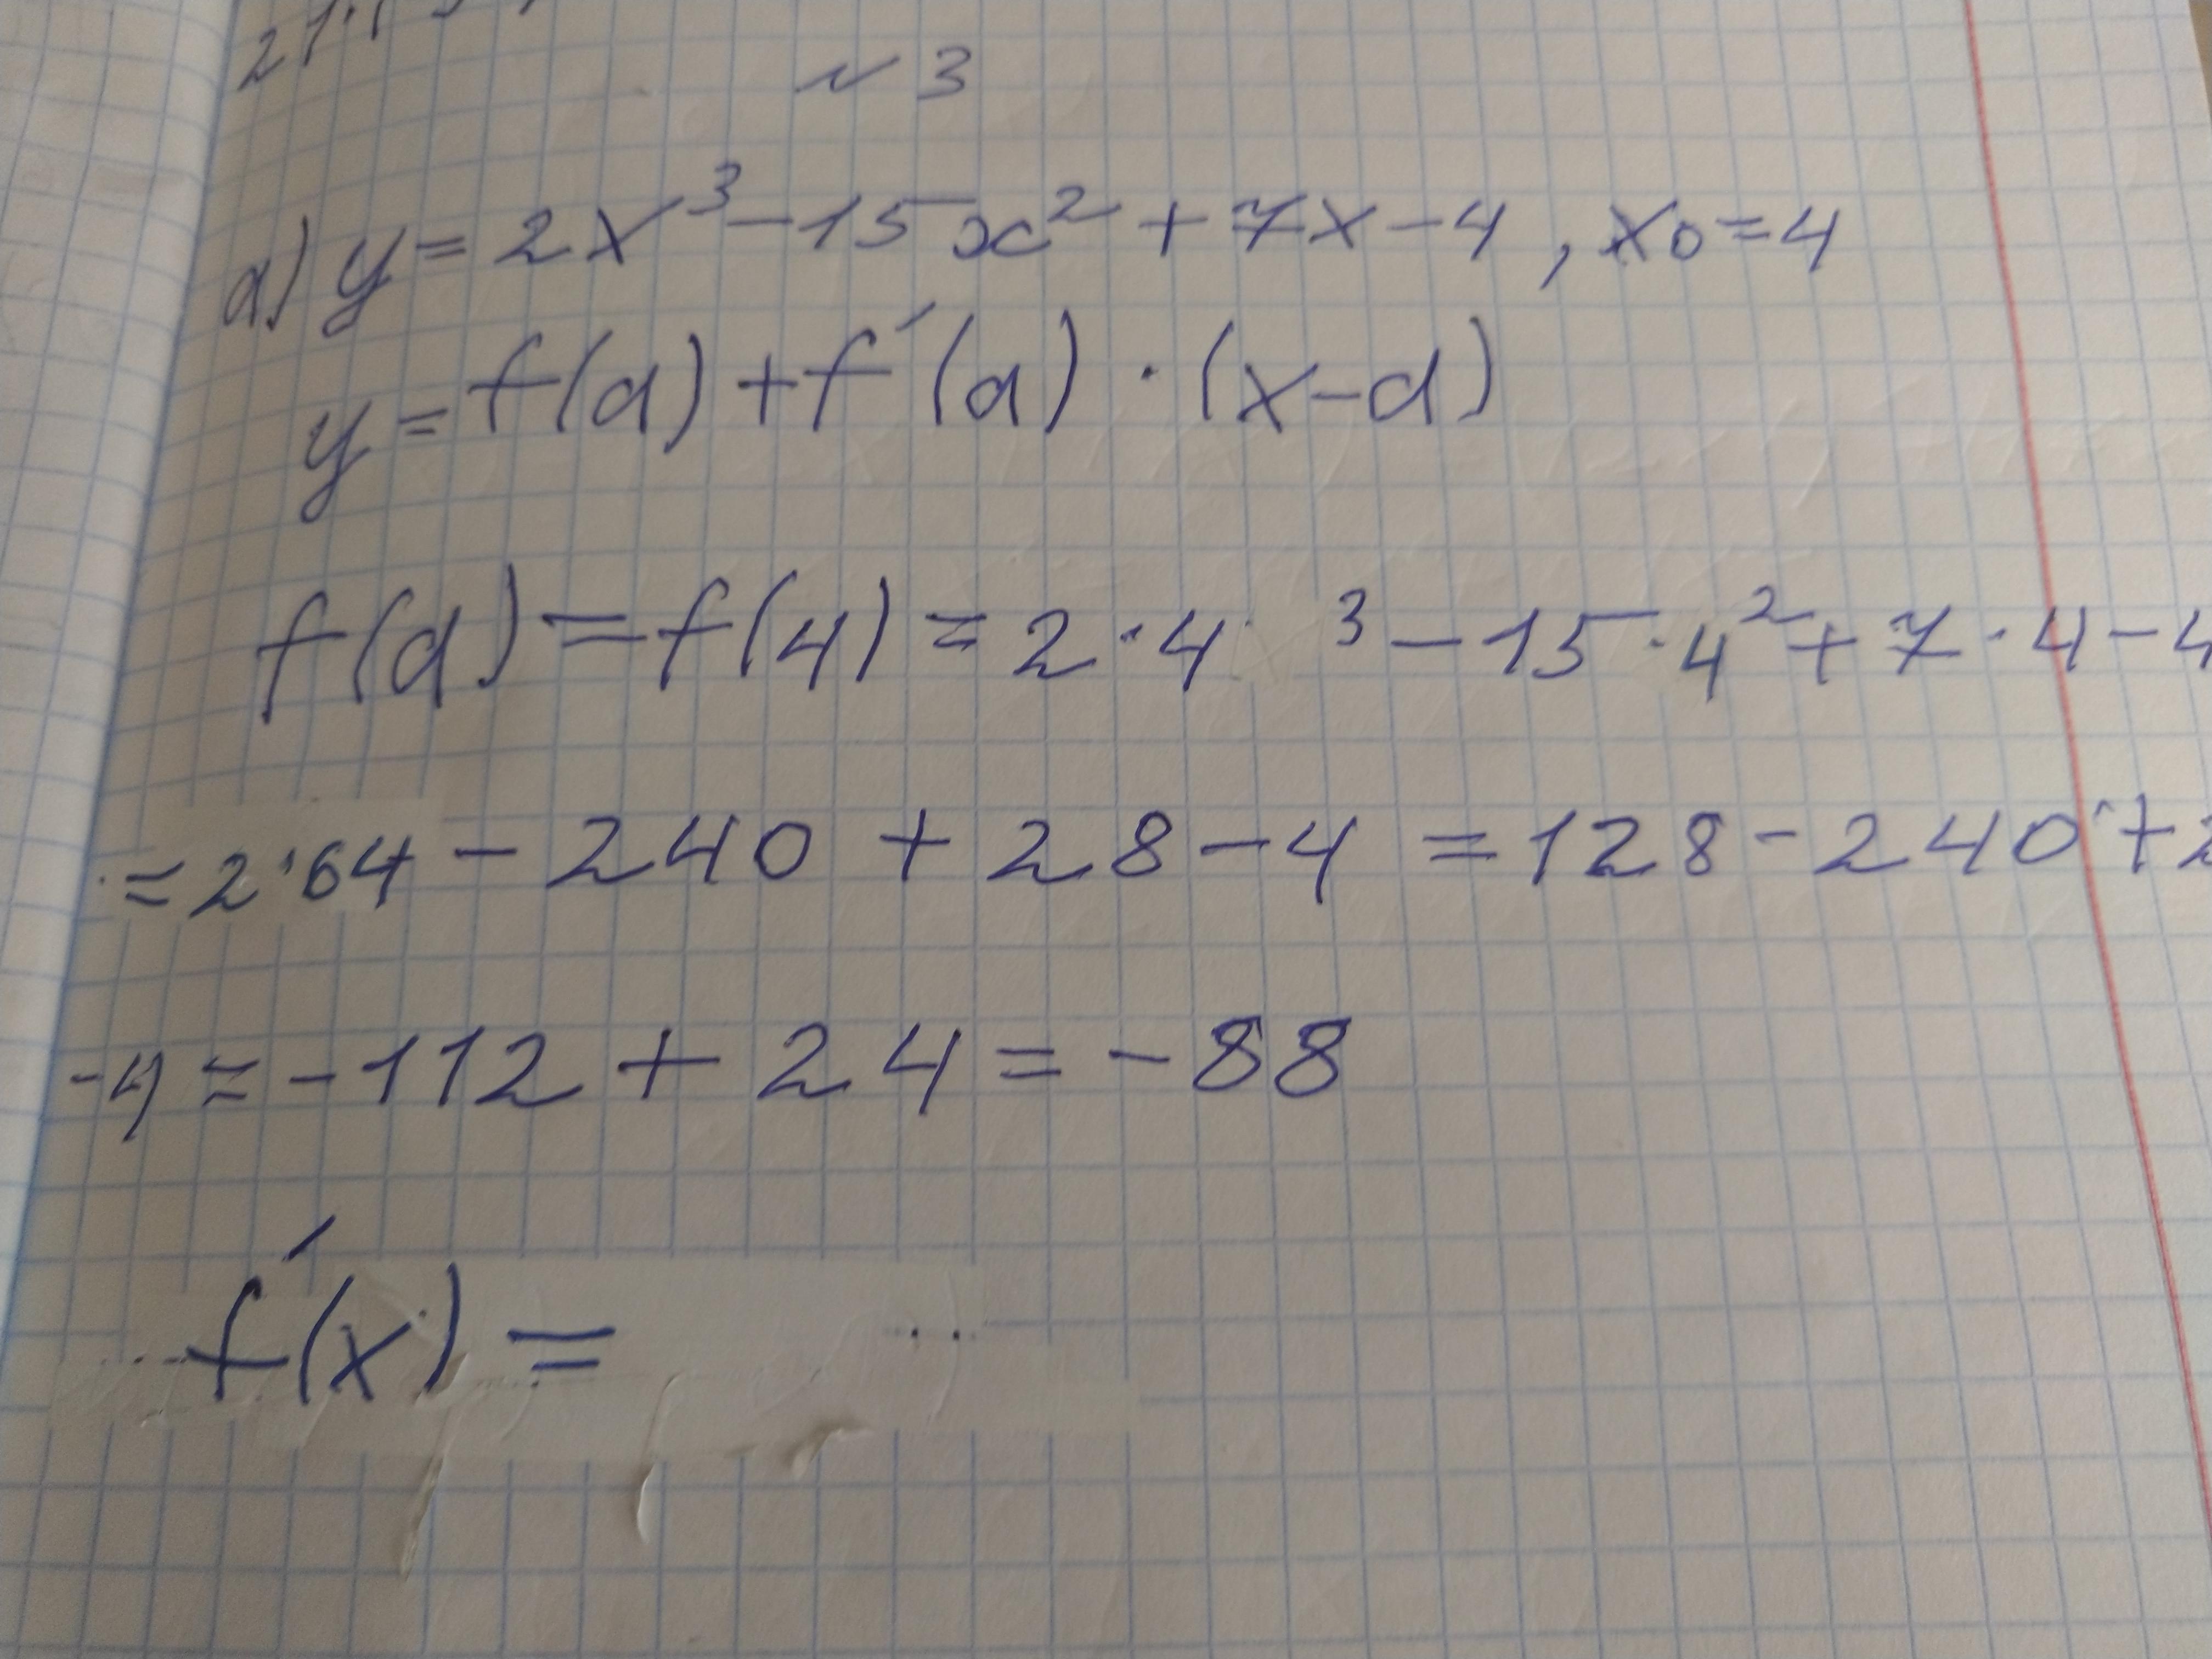 № 3
а) y = 2x³ - 15x² + 7x - 4, x₀ = 4
y = f(a) + f'(a) · (x - a)
f(a) = f(4) = 2 · 4³ - 15 · 4² + 7 · 4 - 4
= 2·64 - 240 + 28 - 4 = 128 - 240 + 2
-4 = -112 + 24 = -88
f'(x) =